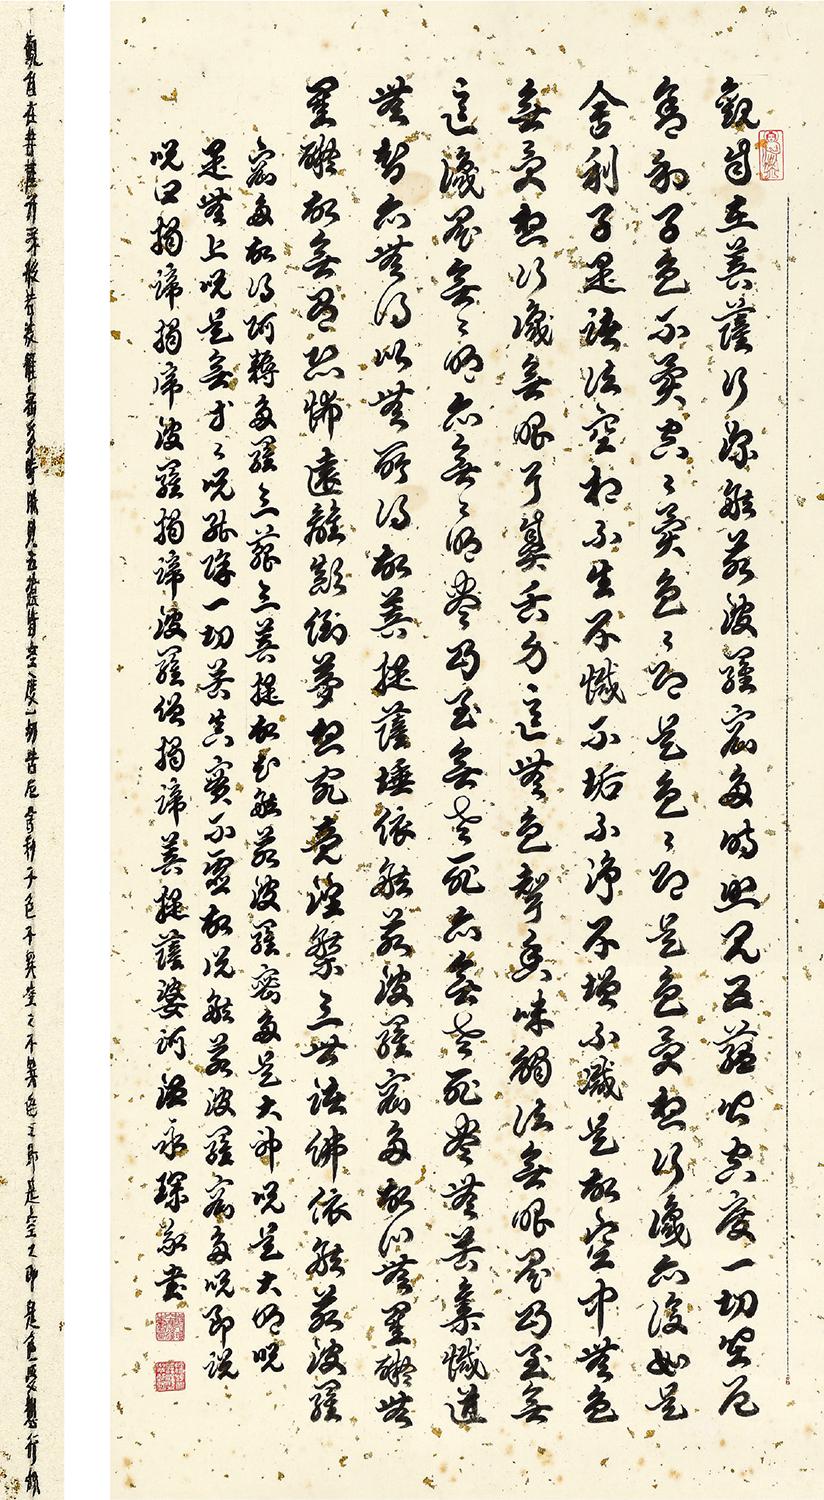 觀自在菩薩行深般若波羅密多時照見五蘊皆空度一切苦厄
舍利子色不異空々異色々即是空々即是色受想行識亦復如是
舍利子是諸法空相不生不滅不垢不淨不增不減是故空中無色
無受想行識無眼耳鼻舌身意無色聲香味觸法無眼界乃至無
意識界無々明亦無々明盡乃至無老死亦無老死盡無苦集滅道
無智亦無得以無所得故菩提薩埵依般若波羅密多故心無罣礙無
罣礙故無有恐怖遠離顛倒夢想究竟涅槃三世諸佛依般若波羅
密多故得阿耨多羅三藐三菩提故知般若波羅密多是大神咒是大明咒
是無上咒是無等々咒能除一切苦真實不虛故說般若波羅密多咒即說
咒曰揭諦揭諦波羅揭諦波羅僧揭諦菩提薩婆訶
觀自在菩薩行深般若波羅密多時照見五蘊皆空度一切苦厄舍利子色不異空々不異色々即是空々即是色受想行識